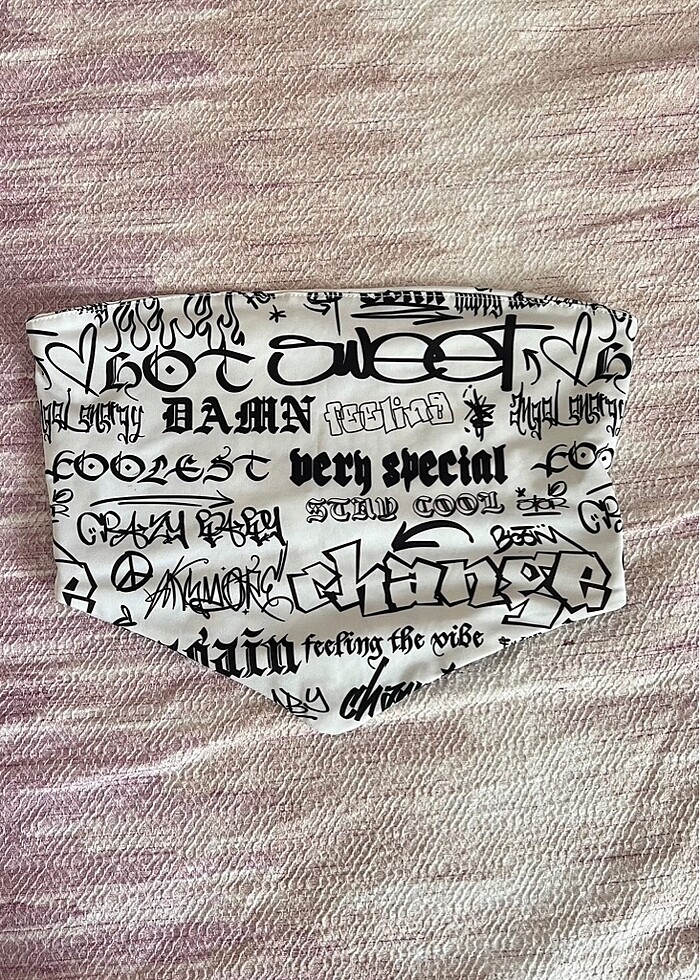 HOT sweet H
Angel energy DAMN feeling Angel energy
COOLEST very special CO
STAY COOL STAR
CRAZY BABY
BOOM
ANYMORE change
again feeling the vibe